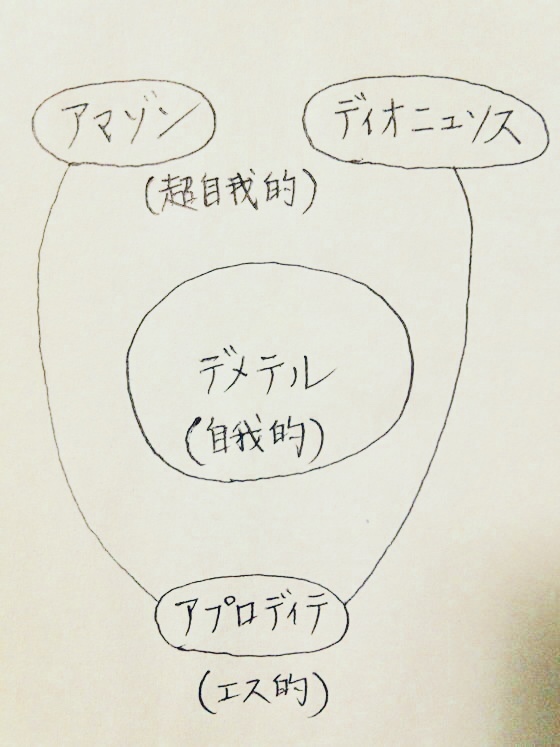 アマゾン
ディオニュソス
(超自我的)
デメテル
(自我的)
アプロディテ
(エス的)